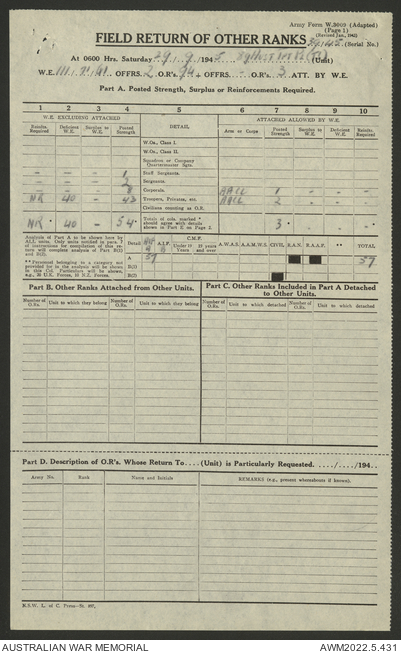 Army Form W.3009 (Adapted)
(Page 1)
(Revised Jan., 1942)
FIELD RETURN OF OTHER RANKS (Serial No.)
At 0600 Hrs. Saturday 29 / 9 /1945 (Unit)
W.E. OFFRS. 2 O.R's. + OFFRS. - O.R's. 3 ATT. BY W.E.
Part A. Posted Strength, Surplus or Reinforcements Required.
1 2 3 4 5 6 7 8 9 10
W.E. EXCLUDING ATTACHED DETAIL ATTACHED ALLOWED BY W.E.
Reinfts. Required Deficient W.E. Surplus to W.E. Posted Strength Arm or Corps Posted Strength Surplus to W.E. Deficient W.E. Reinfts. Required
W.Os., Class I.
W.Os., Class II.
Squadron or Company Quartermaster Sgts.
- - - 1 Staff Sergeants.
- - - 2 Sergeants.
- - - 8 Corporals. 1
NR 40 - 43 Troopers, Privates, etc. 2
Civilians counting as O.R.
NR * 40 - 54 * Totals of cols. marked * should agree with details shown in Part E on Page 2. 3 *
Analysis of Part A to be shown here by ALL units. Only units notified in para. 7 of instructions for compilation of this return will complete analysis of Part B(1) and B(2).
** Personnel belonging to a category not provided for in the analysis will be shown in this Col. Particulars will be shown, e.g., 20 U.K. Forces, 10 N.Z. Forces.
Detail A.I.F. C.M.F. Under 19 19 years and over A.W.A.S. A.A.M.W.S. CIVIL R.A.N. R.A.A.F. ** TOTAL
A 57 57
B(1)
B(2)
Part B. Other Ranks Attached from Other Units.
Part C. Other Ranks Included in Part A Detached to Other Units.
Number of O.Rs. Unit to which they belong Number of O.Rs. Unit to which they belong Number of O.Rs. Unit to which detached Number of O.Rs. Unit to which detached
Part D. Description of O.R's. Whose Return To....(Unit) is Particularly Requested. ..../..../194..
Army No. Rank Name and Initials REMARKS (e.g., present whereabouts if known).
N.S.W. L. of C. Press
AUSTRALIAN WAR MEMORIAL AWM2022.5.431